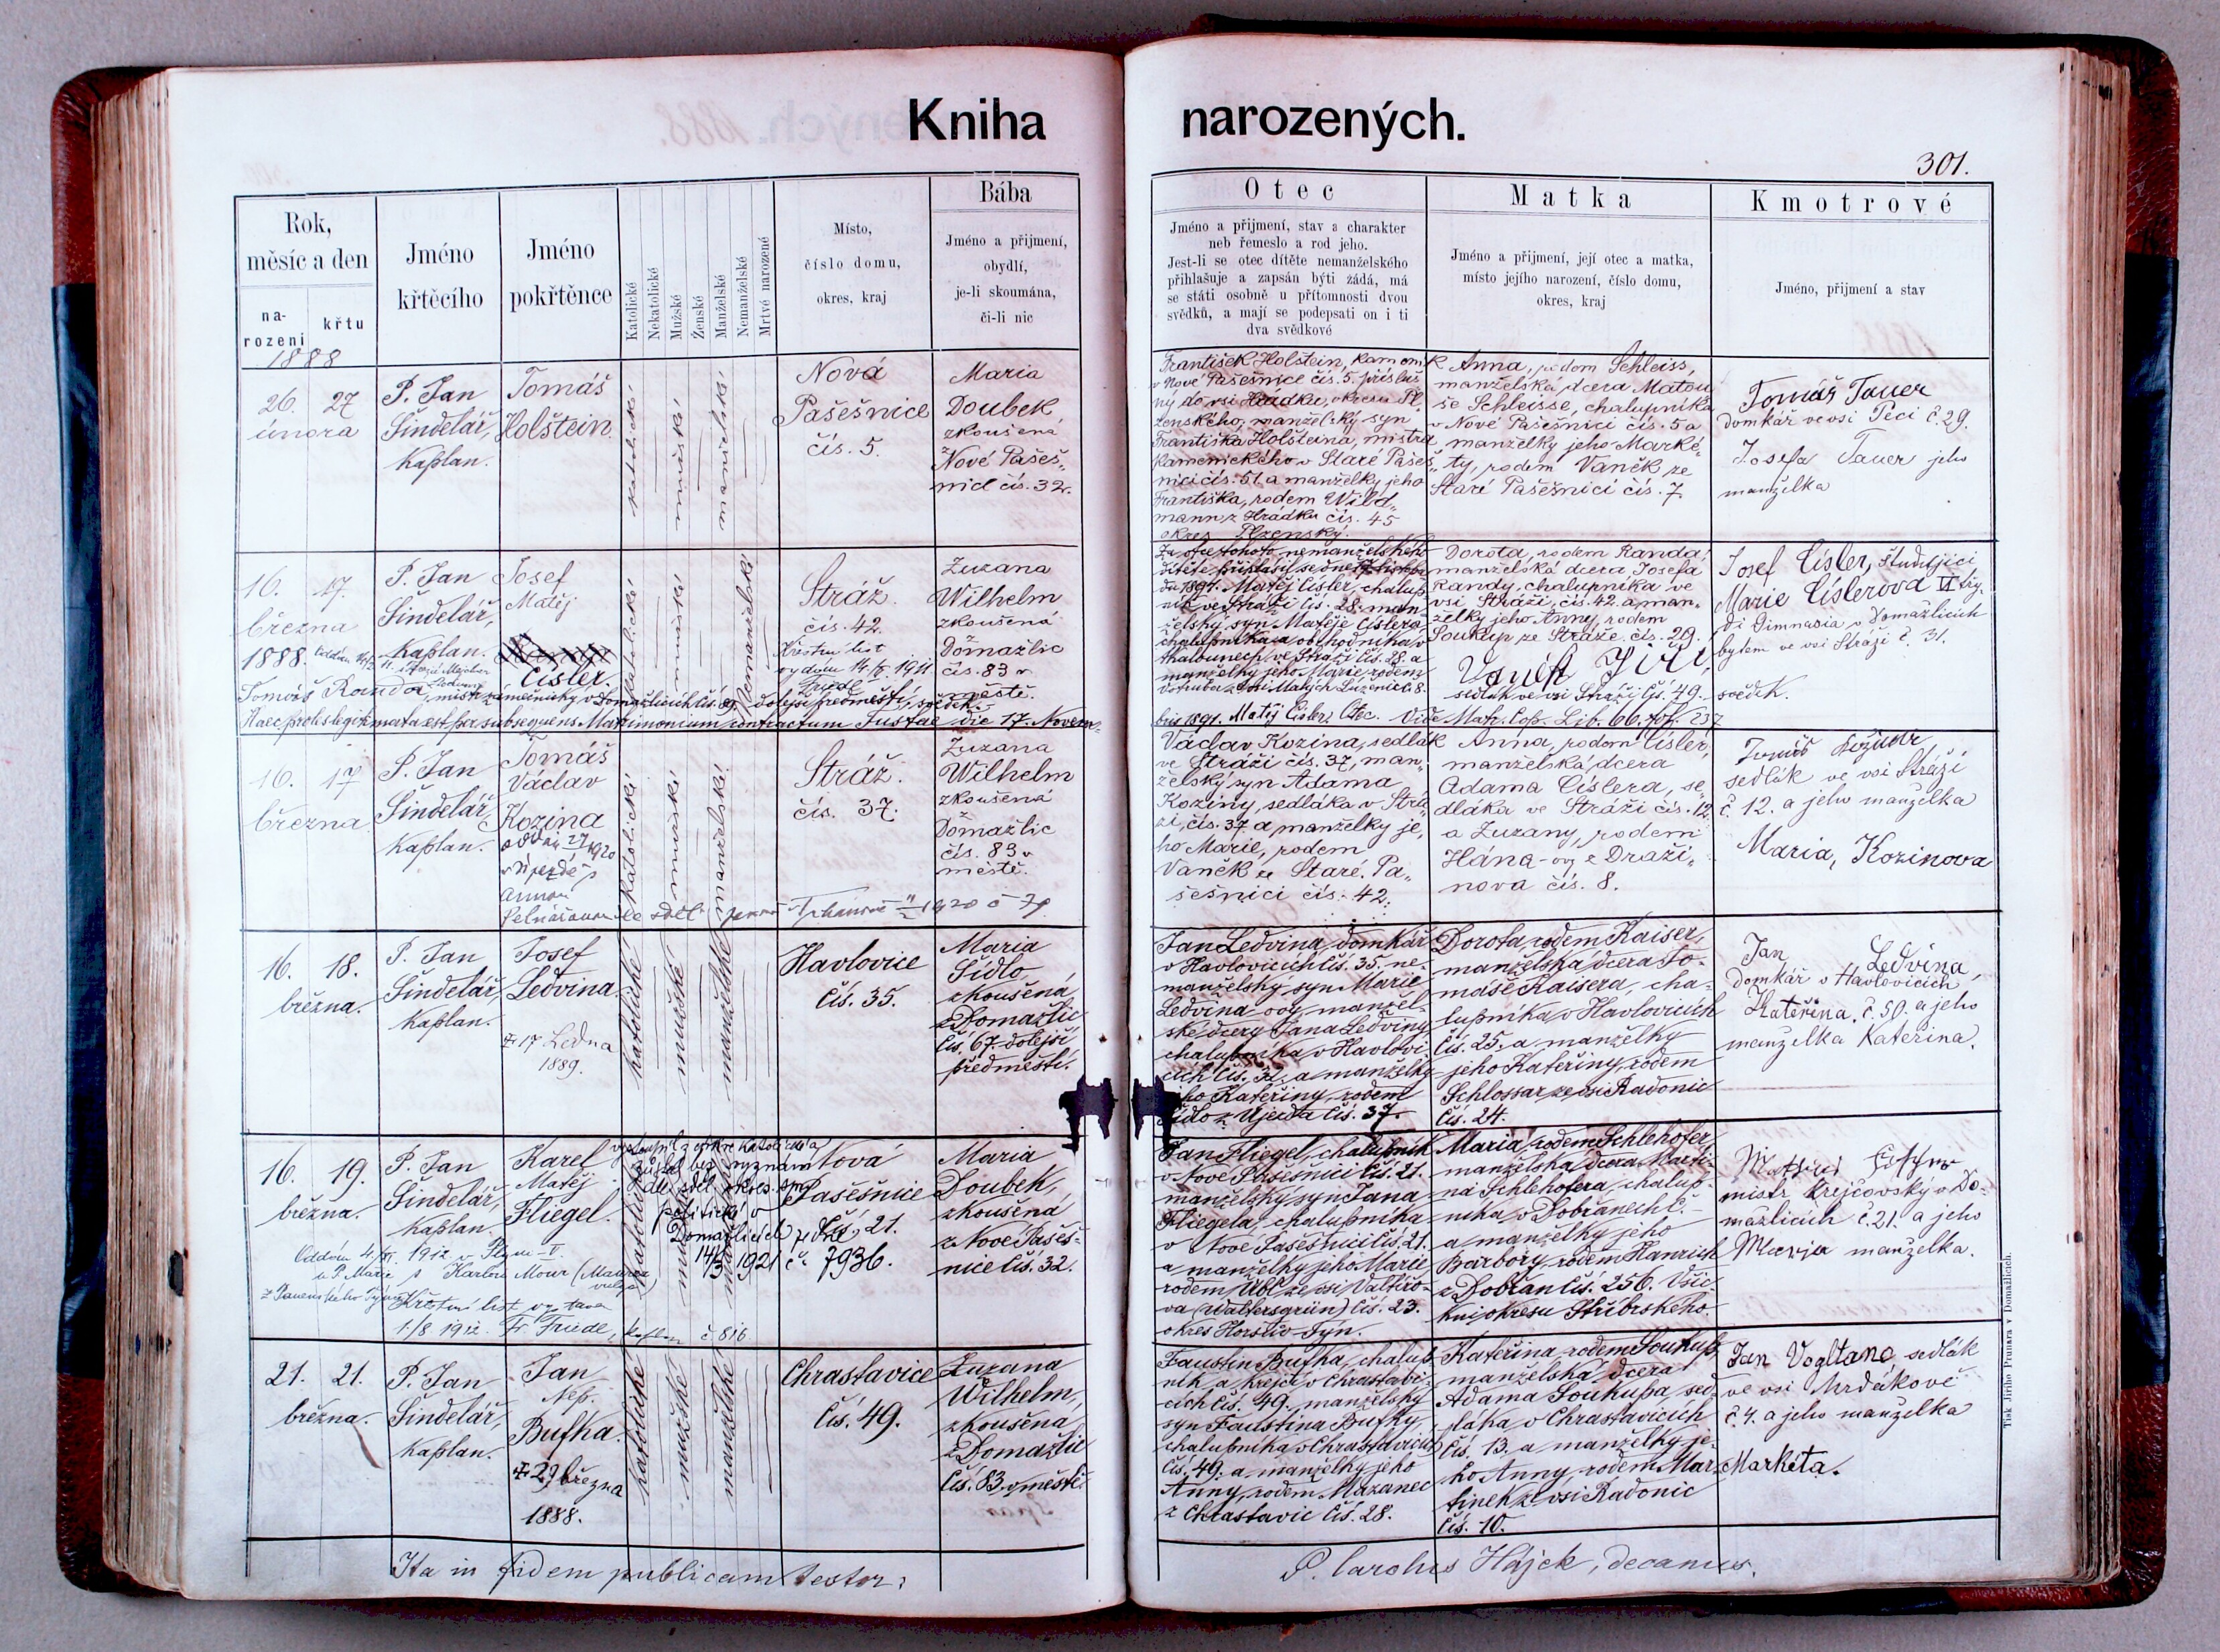 Kniha
narozených.
301.
Rok,
měsíc a den
na-
rození
křtu
Jméno
křtěcího
Jméno
pokřtěnce
Katolické
Nekatolické
Mužské
Ženské
Manželské
Nemanželské
Mrtvě narozené
Místo,
číslo domu,
okres, kraj
Bába
Jméno a přijmení,
obydlí,
je-li skoumána,
či-li nic
Otec
Jméno a přijmení, stav a charakter
neb řemeslo a rod jeho.
Jest-li se otec dítěte nemanželského
přihlašuje a zapsán býti žádá, má
se státi osobně u přítomnosti dvou
svědků, a mají se podepsati on i ti
dva svědkové
Matka
Jméno a přijmení, její otec a matka,
místo jejího narození, číslo domu,
okres, kraj
Kmotrové
Jméno, přijmení a stav
1888
26. 27
února
P. Jan
Šindelář,
kaplan.
Tomáš
Holštein.
katolické
mužské
manželské
Nová
Pašešnice
čís. 5.
Maria
Doubek
zkoušená
z Nové Pašeš„
nice čís. 32.
František Holštein, kameník
v Nové Pašešnice čís. 5. přísluš
ný do vsi Hrádku, okresu Pl„
zenského, manželský syn
Františka Holšteina, mistra
kamenického v Staré Pašeš„
nici čís. 51. a manželky jeho
Františka, rodem Wild„
mann z Hrádku čís. 45
okres Plzenský.
Anna, rodem Schleiss,
manželská dcera Matou
še Schleisse, chalupníka
v Nové Pašešnici čís. 5 a
manželky jeho Marké„
ty, rodem Vaněk ze
Staré Pašešnicí čís. 7
Tomáš Tauer
domkář ve vsi Peci č. 29.
Josefa Tauer jeho
manželka
16. 17.
března
1888.
P. Jan
Šindelář,
kaplan.
Josef
Matěj
Císler.
katolické
mužské
Nemanželské
Stráž.
čís. 42.
Křestní list
vydán 14./X. 1911
Friedl
Zuzana
Wilhelm
zkoušená
z Domažlic
čís. 83 v
městě.
Za otce tohoto nemanželského
dítěte přihlásil se dne 17. listopa
du 1891. Matěj Císler, chalup
ník ve Stráži čís. 28. man
želský syn Matěje Císlera
manželky jeho Marie, rodem
Dorota, rodem Randa,
manželská dcera Josefa
Randy, chalupníka ve
vsi Stráži, čís. 42. a man„
želky jeho Anny, rodem
Soukup ze Stráže, čís. 29.
Vaněk Jiří,
sedlák ve vsi Stráži čís. 49. svědek.
Josef Císler, študující
Marie Císlerová VI tří.
di Gimnasia v Domažlicích
bytem ve vsi Stráži č. 31.
Tomáš Randa, mistr zámečnický v Domažlicích čís. 89 dolejší předměstí, svědek.
Haec proles legitimata est per subsequens Matrimonium contractum Tustae die 17. Novem„
bris 1891. Matěj Císler, Otec. Vide Matr. Cop. Lib. 66. fol. 237
16. 17
března.
P. Jan
Šindelář,
kaplan.
Tomáš
Václav
Kozina
katolické
mužské
manželské
Stráž.
čís. 37.
Zuzana
Wilhelm
zkoušená
z Domažlic
čís. 83 v
městě.
Václav Kozina, sedlák
ve Stráži čís. 37, man„
želský syn Adama
Koziny, sedláka v Strá„
ži, čís. 37 a manželky je„
ho Marie, rodem
Vaněk ze Staré Pa„
šešnici čís. 42.
Anna, rodem Císler,
manželská dcera
Adama Císlera, se„
dláka ve Stráži čís. 12
a Zuzany, rodem
Hána-ovy z Draži„
nova čís. 8.
sedlák ve vsi Stráži
č. 12. a jeho manželka
Maria, Kozinova
16. 18.
března.
P. Jan
Šindelář,
kaplan.
Josef
Ledvina.
17 Ledna
1889.
katolické
mužské
manželské
Havlovice
Čís. 35.
Maria
Sidlo
zkoušená
z Domažlic
čís. 67. dolejší
předměstí.
Jan Ledvina, domkář
v Havlovicích čís. 35, ne-
manželský syn Marie
Ledvina-ovy, manžel-
ské dcery Jana Ledviny,
chalupníka v Havlovi-
cích čís. 32. a manželky
jeho Kateřiny, rodem
Sidlo z Újezda čís. 37.
Dorota, rodem Kaiser,
manželská dcera To-
máše Kaisera, cha-
lupníka v Havlovicích
čís. 25. a manželky
jeho Kateřiny, rodem
Schlossar ze vsi Radonic
čís. 24.
Jan Ledvina,
domkář v Havlovicích
Kateřina. č. 50. a jeho
manželka Kateřina.
16. 19.
března.
P. Jan
Šindelář,
kaplan.
Karel
Matěj
Fliegel.
vystoupil z církve katolické a
zůstal bez vyznání
politické v
Domažlicích ze dne
14/3 1921 č. 7936.
katolické
mužské
manželské
Nová
Pašešnice
čís. 21.
Maria
Doubek,
zkoušená
z Nové Pašeš-
nice čís. 32.
Oddán 4./XI. 1912 v Plzni
Křestní list vydán
1./8 1912. Fr. Friedl, kaplan č. 816
Jan Fliegel, chalupník
v Nové Pašešnici čís. 21.
manželský syn Jana
Fliegela, chalupníka
v Nové Pašešnici čís. 21.
a manželky jeho Marie
rodem Übl ze vsi Valtíro-
va (Waltersgrün) čís. 23.
okres Horšův-Týn.
Maria, rodem Schlehofer,
manželská dcera Marti-
na Schlehofera, chalup-
níka v Dobřanech č.-
a manželky jeho
Barbory, rodem Hanrich
z Dobřan čís. 256. Všic-
kni okresu Stříbrského.
mistr krejčovský v Do-
mažlicích č. 21. a jeho
Marja manželka.
21. 21.
března.
P. Jan
Šindelář,
kaplan.
Jan
Nep.
Bufka.
29 března
1888.
katolické
mužské
manželské
Chrastavice
čís. 49.
Zuzana
Wilhelm,
zkoušená
z Domažlic
čís. 83. v městě.
Faustin Bufka, chalup
ník a krejčí v Chrastavi-
cích čís. 49., manželský
syn Faustina Bufky,
chalupníka v Chrastavicích
čís. 49. a manželky jeho
Anny, rodem Mazanec
z Chrastavic čís. 28.
Kateřina, rodem Soukup,
manželská dcera
Adama Soukupa, sed-
láka v Chrastavicích
čís. 13. a manželky je-
ho Anny, rodem Mar-
tinek ze vsi Radonic
čís. 10.
Jan Vogltanc, sedlák
ve vsi Mrdákově
č. 4. a jeho manželka
Markéta.
Ita in fidem publicam testor:
P. Carolus Hájek, decanus.
Tisk Jiřího Prunara v Domažlicích.